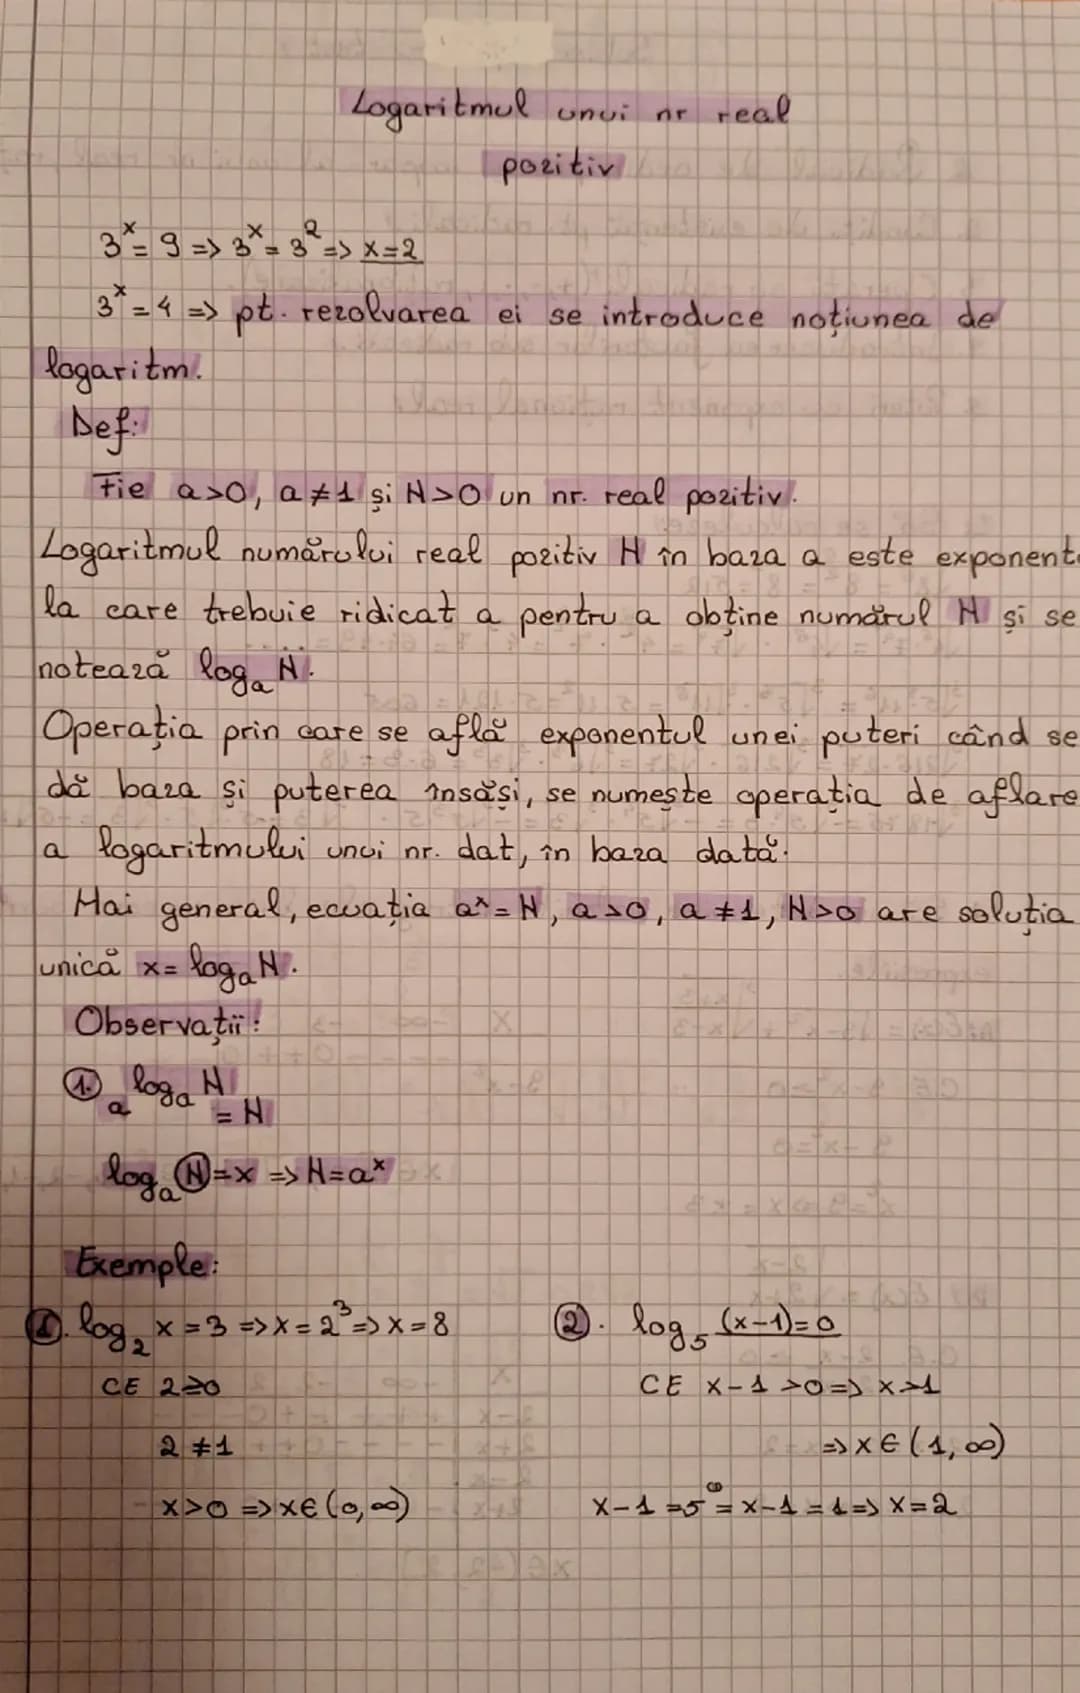 Logaritmul unui nr real
pozitiv
3^x = 9 => 3^x = 3^2 => x=2
3^x = 4 => pt. rezolvarea ei se introduce noțiunea de
logaritm.
Def:
Fie a>0, a≠1 și N>0 un nr. real pozitiv.
Logaritmul numărului real pozitiv N în baza a este exponent
la care trebuie ridicat a pentru a obține numărul N și se
notează log_a N.
Operația prin care se află exponentul unei puteri când se
dă baza și puterea însăși, se numește operația de aflare
a logaritmului unui nr. dat, în baza dată.
Mai general, ecuația a^x = N, a>0, a≠1, N>0 are soluția
unică x= log_a N.
Observații:
1. a^(log_a N) = N
log_a N = x => N = a^x
Exemple:
1. log_2 x = 3 => x = 2^3 => x = 8
CE 2>0
2≠1
x>0 => x∈(0,∞)
2. log_5 (x-1)=0
CE x-1>0 => x>1
=> x∈(1,∞)
x-1 = 5^0 = x-1 = 1 => x=2